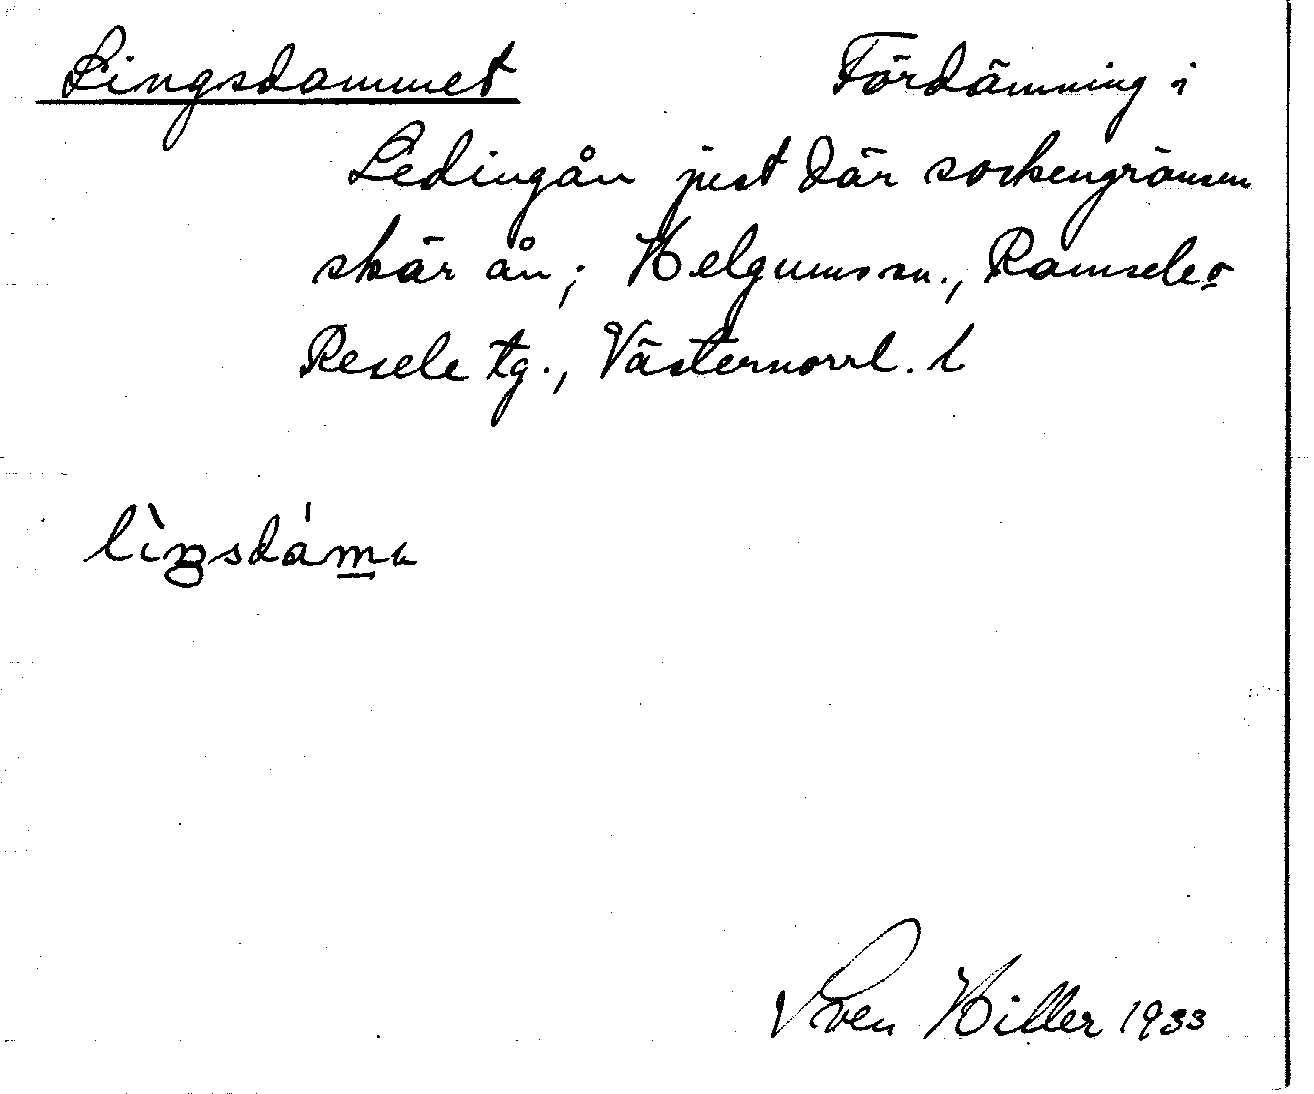 Lingsdammet Fördämning i
Ledingån just där sockengränsen
skär ån; Helgums sn., Ramsele o
Resele tg., Västernorrl. l
Sven Hiller 1933